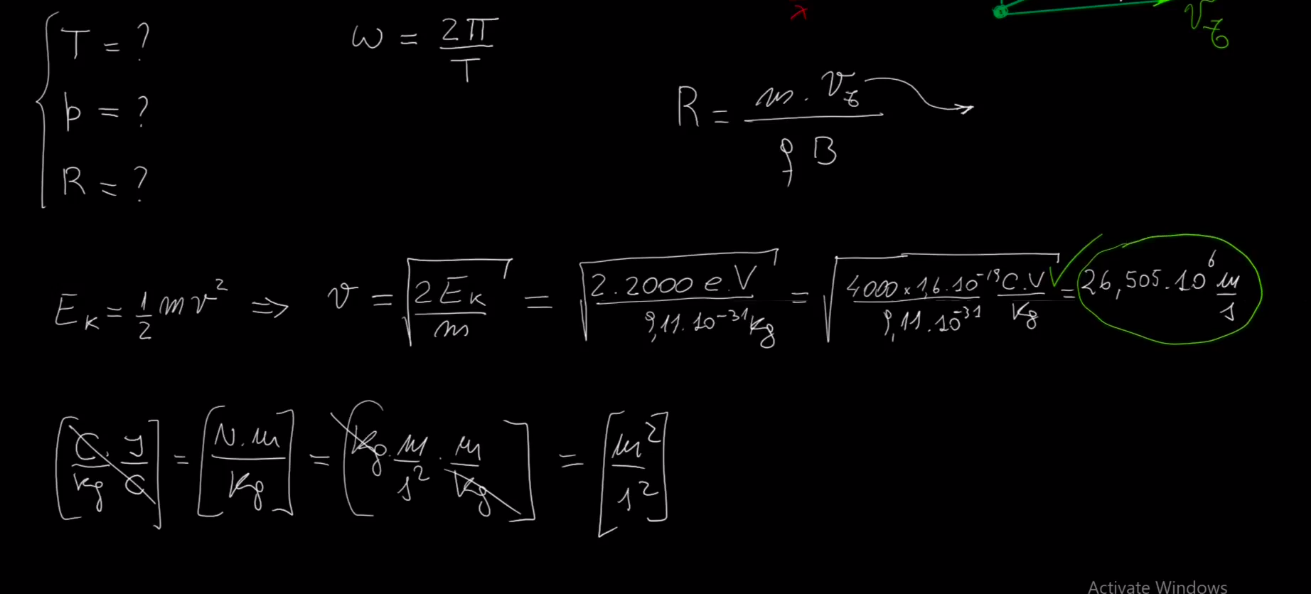 T = ?
ω = 2π/T
v_z
p = ?
R = m · v_z / q B
R = ?
E_K = 1/2 m v² ⇒ v = √(2 E_K / m) = √(2 · 2000 e · V / 9,11 · 10⁻³¹ kg) = √(4000 × 1,6 · 10⁻¹⁹ C · V / 9,11 · 10⁻³¹ kg) = 26,505 · 10⁶ m/s
[C/kg · J/C] = [N · m / kg] = [kg · m/s² · m/kg] = [m²/s²]
Activate Windows